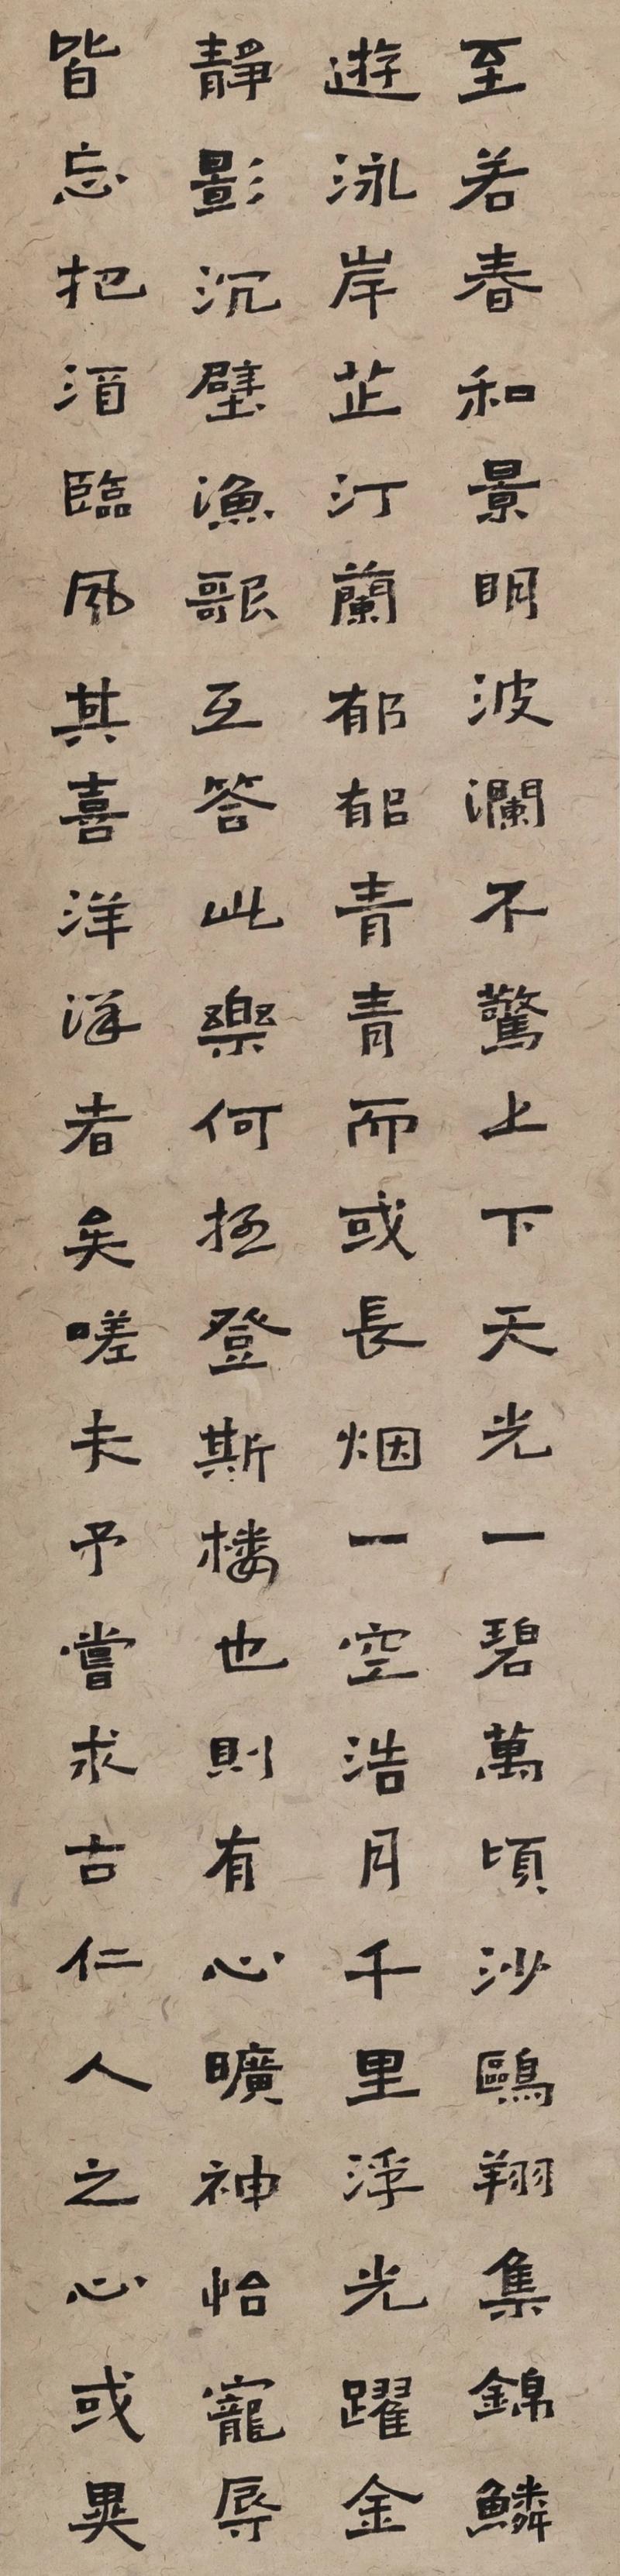 至若春和景明波瀾不驚上下天光一碧萬頃沙鷗翔集錦鱗
遊泳岸芷汀蘭郁郁青青而或長烟一空浩月千里浮光躍金
靜影沉壁漁歌互答此樂何極登斯楼也則有心曠神怡寵辱
皆忘把酒臨風其喜洋洋者矣嗟夫予嘗求古仁人之心或異